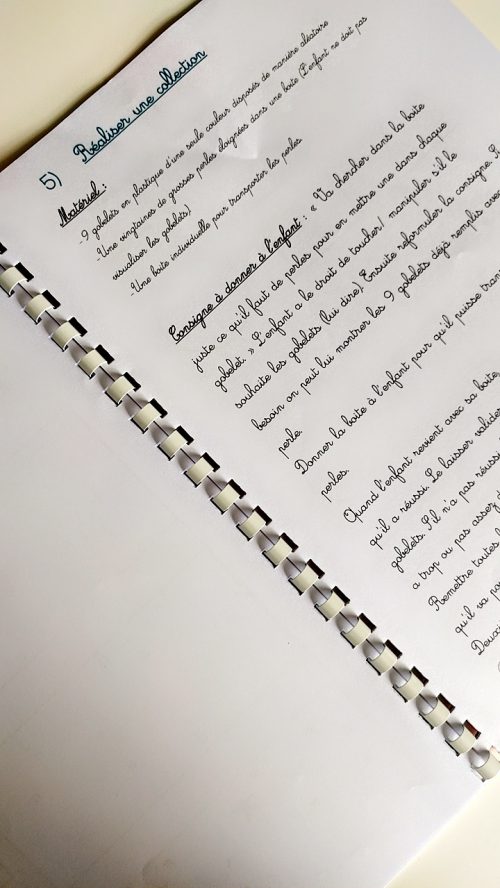 5) Réaliser une collection
Matériel :
-9 gobelets en plastique d'une seule couleur disposés de manière aléatoire
-Une vingtaines de grosses perles éloignées dans une boite (L'enfant ne doit pas
visualiser les gobelets)
-Une boite individuelle pour transporter les perles
Consigne à donner à l'enfant : « Va chercher dans la boite
juste ce qu'il faut de perles pour en mettre une dans chaque
gobelet. » L'enfant a le droit de toucher/ manipuler s'il le
souhaite les gobelets (lui dire). Ensuite reformuler la consigne. S
besoin on peut lui montrer les 9 gobelets déjà remplis avec
perle.
Donner la boite à l'enfant pour qu'il puisse tran
perles.
Quand l'enfant revient avec sa boite,
qu'il a réussi. Le laisser valider
gobelets. S'il n'a pas réussi
a trop ou pas assez
Remettre toutes
qu'il va
Deuxi